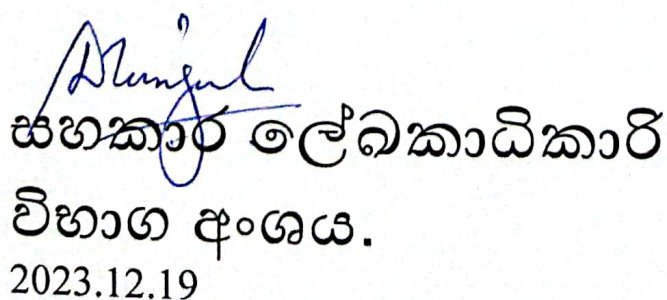 සහකාර ලේඛකාධිකාරි
විභාග අංශය.
2023.12.19